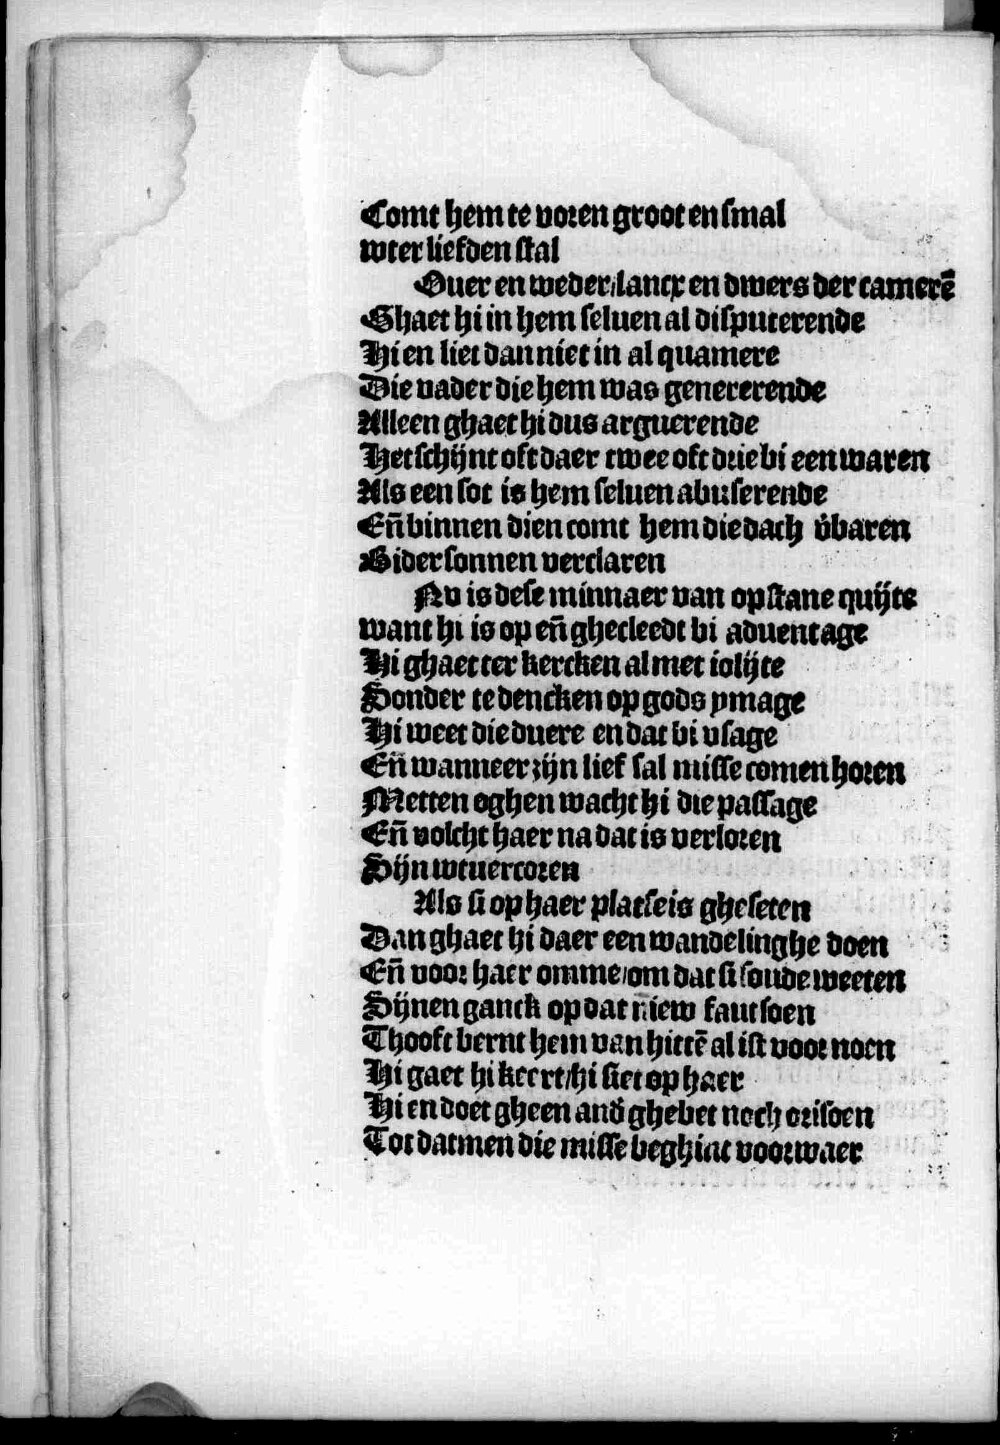 Comt hem te voren groot en smal
wter liefden stal
Ouer en weder/lancx en dwers der camerē
Ghaet hi in hem seluen al disputerende
Hi en liet dan niet in al quamere
Die vader die hem was genererende
Alleen ghaet hi dus arguerende
Het schijnt oft daer twee oft drie bi een waren
Als een sot is hem seluen abuserende
Eñ binnen dien comt hem die dach v̄baren
Bi der sonnen verclaren
Nv is dese minnaer van opstane quijte
want hi is op eñ ghecleedt bi aduentage
Hi ghaet ter kercken al met iolijte
Sonder te dencken op gods ymage
Hi weet die duere en dat bi vsage
Eñ wanneer zijn lief sal misse comen horen
Metten oghen wacht hi die passage
Eñ volcht haer na dat is verloren
Sijn wtuercoren
Als si op haer plaetse is gheseten
Dan ghaet hi daer een wandelinghe doen
Eñ voor haer omme/om dat si soude weeten
Sijnen ganck op dat niew fautsoen
Thooft bernt hem van hittē al ist voor noen
Hi gaet hi keert/hi siet op haer
Hi en doet gheen and̄ ghebet noch orisoen
Tot datmen die misse beghint voorwaer